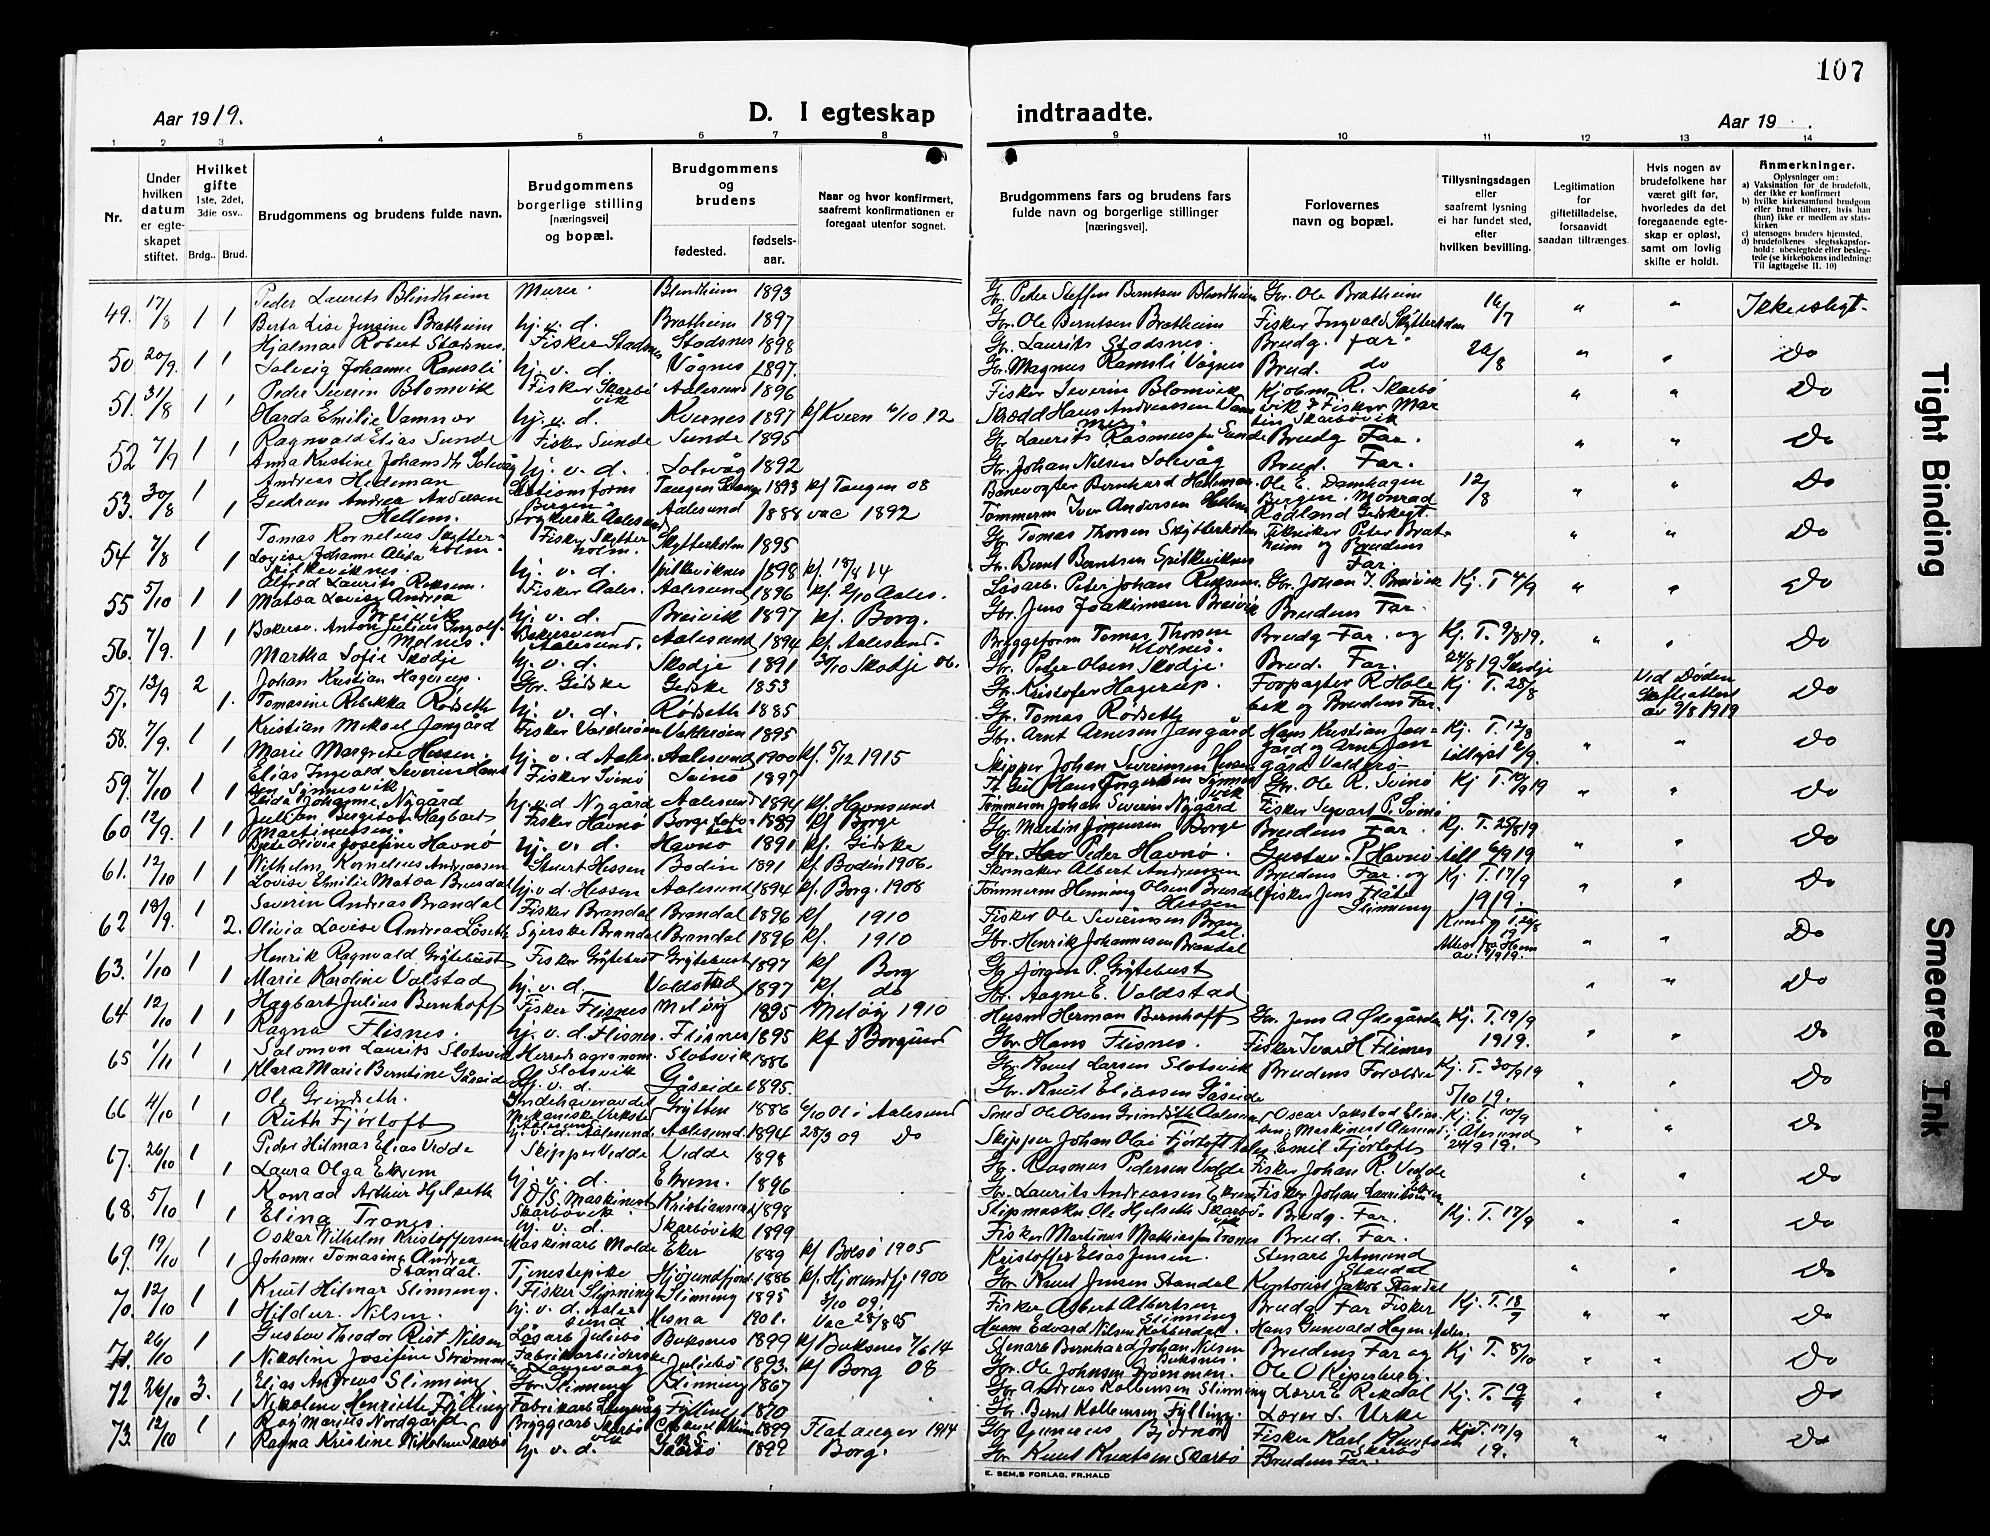 107
Aar 1919.
D. I egteskap indtraadte.
Aar 19
1 2 3 4 5 6 7 8 9 10 11 12 13 14
Nr.
Under hvilken datum er egteskapet stiftet.
Hvilket gifte 1ste, 2det, 3die osv..
Brdg.. Brud.
Brudgommens og brudens fulde navn.
Brudgommens borgerlige stilling [næringsvei] og bopæl.
Brudgommens og brudens
fødested.
fødselsaar.
Naar og hvor konfirmert, saafremt konfirmationen er foregaat utenfor sognet.
Brudgommens fars og brudens fars fulde navn og borgerlige stillinger [næringsvei].
Forlovernes navn og bopæl.
Tillysningsdagen eller saafremt lysning ei har fundet sted, efter hvilken bevilling.
Legitimation for giftetilladelse, forsaavidt saadan tiltrænges.
Hvis nogen av brudefolkene har været gift før, hvorledes da det foregaaende egteskap er opløst, samt om lovlig skifte er holdt.
Anmerkninger.
Oplysninger om:
a) Vaksination for de brudefolk, der ikke er konfirmert
b) hvilke kirkesamfund brudgom eller brud tilhører, hvis han (hun) ikke er medlem av statskirken
c) utensogns bruders hjemsted.
d) brudefolkenes slegtskapsforhold: ubeslegtede eller beslegtede (se kirkebokens indledning: Til iagttagelse II. 10)
49. 17/8 1 1 Peder Laurits Blindheim Murer Blindheim 1893 Gr. Peder Steffen Berntsen Blindheim Gbr. Ole Bratheim 16/7 " " Ikke slegt.
Berta Lise Jensine Bratheim hj. v. d. Bratheim 1897 Gbr. Ole Berntsen Bratheim Fisker Ingvald Skytterholm
50 20/9. 1 1 Hjalmar Robert Stadsnes. Fisker Stadsnes Stadsnes 1898 Gr. Laurits Stadsnes. Brudg. far. 20/8 " " Do
Solveig Johanne Ramsli hj. v. d. Vågnes 1897. Gr. Magnus Ramsli Vågnes Brud. do
51. 31/8 1 1 Peder Severin Blomvik Fisker Skarbøvik Aalesund 1896 Fisker Severin Blomvik Kjøbm. R. Skarbøvik " " Do
Harda Emilie Vamnor hj. v. d. Kvernes 1897 kf Kvern 6/10 12
52 7/9 1 1 Ragnvald Elias Sunde Fisker Sunde Sunde 1895 Gr. Laurits Rasmussen Sunde Brudg Far. " " Do
Anna Kristine Johansdtr Solvåg hj. v. d. Solvåg 1892 Gr. Johan Nilsen Solvåg Brud. Far.
53. 30/8 1 1 Andreas Hedeman Stationsform Bergen 1893 kf Tangen 08 Banevogter Bernhard Ole E. Damhagen Bergen. 12/8 " " Do
Gudrun Andrea Andersen Hellem. Strykerske Aalesund Aalesund 1888 vac 1892 Tømmerm Iver Andersen Hellem Rødland
54 7/8 1 1 Tomas Kornelius Skytterholm. Fisker Skytterholm. Skytterholm 1895 Gr. Tomas Thorsen Skytterholm Peter Bratheim og Brudens Far. " " Do
Lovise Johanne Alida Spilkeviknes. hj. v. d. Spilkeviknes 1898 kf. 18/8 14 Gr. Bernt Berntsen Spilkeviknes
55 5/10 1 1 Alfred Laurits Reksen. Fisker Aales. Aalesund 1896 kf. 2/10 Aales. Løsarb. Peter Johan Reksen Gbr. Johan J. Breivik Kj. T 4/9 " " Do
Matea Lovise Andrea Breivik hj. v. d. Breivik 1897 kf. Borg. Gbr. Jens Joakimsen Breivik Brudens Far.
56. 7/9. 1 1 Bakersv. Anton Julius Ingolf Molnes. Bakersvend Aalesund. Aalesund 1894 kf. Aalesund. Bryggeform Tomas Thorsen Brudg Far. og Kj. T. 9/8 19. " " Do
Martha Sofie Skodje hj. v. d. Skodje 1891 Skodje 06. Gr. Peter Olsen Skodje. Brud. Far. 24/8 19 Skodje
57. 13/9 2 1. Johan Kristian Hagerup. Gbr. Gidske Gidske 1853 Gr. Kristofer Hagerup. Forpagter R. Kj T. 25/8 Ved Døden Skifteattest av 9/8 1919 Do
Tomasine Rebekka Rødseth hj. v. d. Rødseth 1885 Gr. Tomas Rødseth og Brudens Far.
58. 7/9. 1 1 Kristian Mikael Jangård Fisker Valderøen Valderøen 1895 Gbr. Arnt Arnesen Jangård Hans Kristian Jangård og Arnt Jangård Valderø Kj. T. 12/8 " " Do
Marie Margrete Hessen. hj. v. d Aales. Aalesund 1900 kf. 5/12 1915 Skipper Johan Severinsen Hessen
59. 7/10 1 1 Elias Ingvald Severin Hansen Synnesvik Fisker Svinø Svinø 1897 Gbr. Ole R. Svinø Kj T. 10/9 19 " " Do
Elida Johanne Nygård hj. v. d Nygård Aalesund 1894 kf. Havnsund Tømmerm Johan Severin Nygård Fisker Sigvart P. Svinø
60 12/9. 1 1 Julian Hagbart Martinussen. Fisker Havnø Borge 1889 kf Borge Gbr. Martin Jørgensen Borge Brudens Far. Kj. T. 25/8 19 " " Do
Olivie Josefine Havnø hj. v. d. Havnø 1891 kf. Gidske Gbr. Peder Havnø. Gustav P Havnø 6/9 19
61. 12/10 1 1 Wilhelm Kornelius Andreassen Stuert Hessen Bodin 1891 kf Bodin 1906. Skomaker Albert Andreassen Brudens Far. og Kj. T. 17/9 1919. " " Do
Lovise Emilie Matea Brusdal hj. v. d Hessen Aalesund 1894 kf. Borg. 1908 Tømmerm Henning Olsen Brusdal Hessen Fisker Jens Flåte Slinning
62 18/9. 1 2. Severin Andreas Brandal Fisker Brandal Brandal 1896 kf 1910 Fisker Ole Severinsen Brandal. " " Do
Olivia Lovise Andrea Løseth Syerske Brandal Brandal 1896 kf. 1910 Gbr. Henrik Johannesen Brandal
63. 1/10 1 1 Henrik Ragnvald Grytebust Fisker Grytebust Grytebust 1897 kf Borg Gr. Jørgen P. Grytebust " " Do
Marie Karoline Valstad hj. v. d. Valdstad 1897 kf. do Gbr. Aagne E. Valdstad
64 12/10 1 1 Hagbart Julius Bernhoff Fisker Flisnes Meløy 1895 Meløy 1910 Husm Herman Bernhoff Gbr. Jens A Ødegården Kj. T. 19/9 1919. " " Do
Ragna Flisnes. hj. v. d. Flisnes. Flisnes 1895 kf Borgund Gbr. Hans Flisnes. Fisker Ivar H Flisnes
65 1/11 1 1 Salomon Laurits Slotsvik Herredsagronom. Slotsvik Slotsvik 1886 Gbr. Knut Larsen Slotsvik Brudens Forældre Kj. T. 30/9 19 " " Do
Klara Marie Berntine Gåseide hj. v. d. Gåseide 1895. Gbr. Knut Eliassen Gåseide
66 4/10 1 1 Ole Grindseth. Indehaver av det Mekaniske Verksted Aalesund Grytten 1886 6/10 01 i Aalesund Smed Ole Olsen Grindseth Aalesund Oscar Maskinist Alesund. Kj. T. 10/9 Alesund " " Do
Ruth Fjørtoft hj. v. d. Aalesund Aalesund. 1894 28/3 09 Do Skipper Johan Olai Fjørtoft Emil Fjørtoft 24/9 19.
67. 26/10 1 1 Peder Hilmar Elias Vedde Skipper Vedde Vedde 1898 Gr. Rasmus Pedersen Vedde Fisker Johan R. Vedde " " Do
Laura Olga Ekrem hj. v. d. Ekrem. 1896 Gbr. Laurits Andreassen Ekrem Fisker Johan Lauritsen
68. 5/10 1 1 Konrad Arthur Hjelseth D/S. Maskinist Skarbøvik. Kristiansund 1898 Skipmaskn. Ole Hjelseth Skarbøvik Brudg. Far. Kj. T. 17/9 " " Do
Elina Trones. hj. v. d. Skarbøvik 1899 Fisker Martinus Mathiassen Trones Brud. Far.
69. 19/10 1 1 Oskar Wilhelm Kristoffersen Maskinarb Molde Eker 1889 kf Bolsø 1905 Kristoffer Elias Jensen. Stenarb. " " Do
Johanne Tomasine Andrea Standal. Tjenestepike Hjørundfjord 1886 kf. Hjørundfj 1900 Gbr. Knut Jensen Standal Kontorist Jakob Standal
70. 12/10 1 1 Knut Hilmar Slinning. Fisker Slinning Slinning 1895 Fisker Albert Albertsen Slinning Brudg Far Fisker Kj. T. 18/9 " " Do
Hildur Nilsen. hj. v. d. Aalesund Mesna 1901. Vac 28/8 05 Husm Edvard Nilsen Hans Gunvald Hagen Aales.
71. 26/10 1 1 Gustav Theodor Rist Nilsen Løsarb Julebø Buksnes 1899 kf Buksnes 7/6 14 Stenarb Bernhard Johan Nilsen Buksnes. Brudens Far og Kj T. 8/10 " " Do
Nikoline Josefine Strømmen Fabrikarbeiderske Langevaag Julebø 1893. kf Borg 08 Gbr. Ole Johnsen Strømmen. Ole O Kipersberg.
72 26/10 3. 1 Elias Andreas Slinning Gbr. Slinning Slinning 1867 Gbr. Andreas Kolbensen Slinning Lærer E Rekdal Kj. T. 19/9 " " Do
Nikoline Henriette Fylling Fabrikarb Langevåg Fylling 1870 Gbr. Bernt Kolbensen Fylling. Lærer S. Urke
73. 12/10 1 1 Roy Marius Nordgård Bryggearb Skarbøvik 1899 Flatanger 1914 Gbr Gunerius Bjørnør Fisker Karl Knutsen Skarbø Kj. T. 17/9 19. " " Do
Ragna Kristine Nikoline Skarbø hj. v. d. Skarbø 1899 Borg. Gbr Knut Knutsen Skarbø Brudens Far.
E. SEM,S FORLAG, FR.HALD
Tight Binding
Smeared Ink